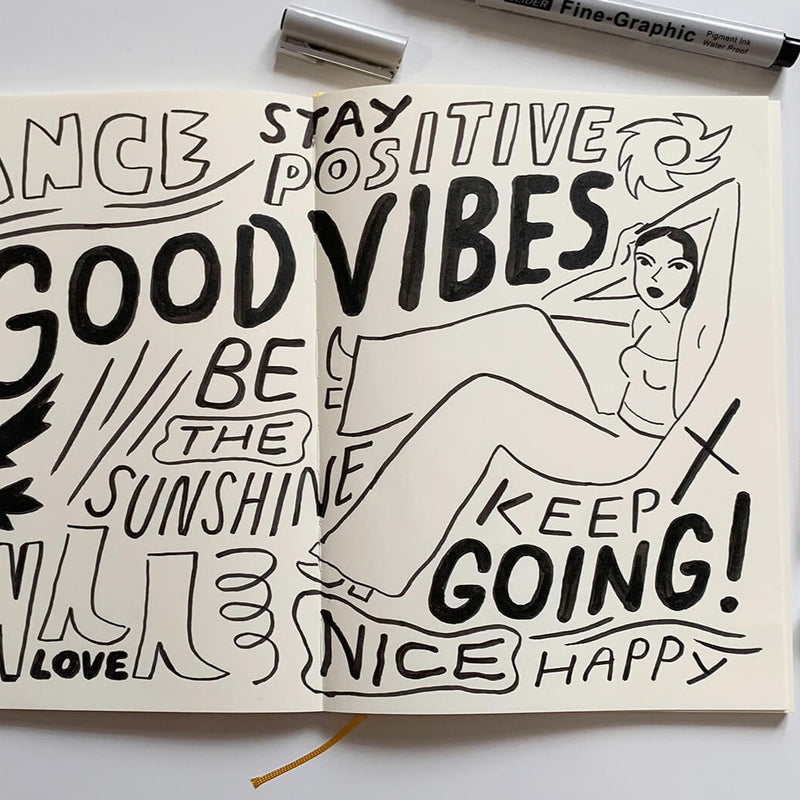 Fine-Graphic
Pigment Ink
Water Proof
ANCE
STAY
POSITIVE
GOOD VIBES
BE
THE
SUNSHINE
KEEP
GOING!
LOVE
NICE
HAPPY